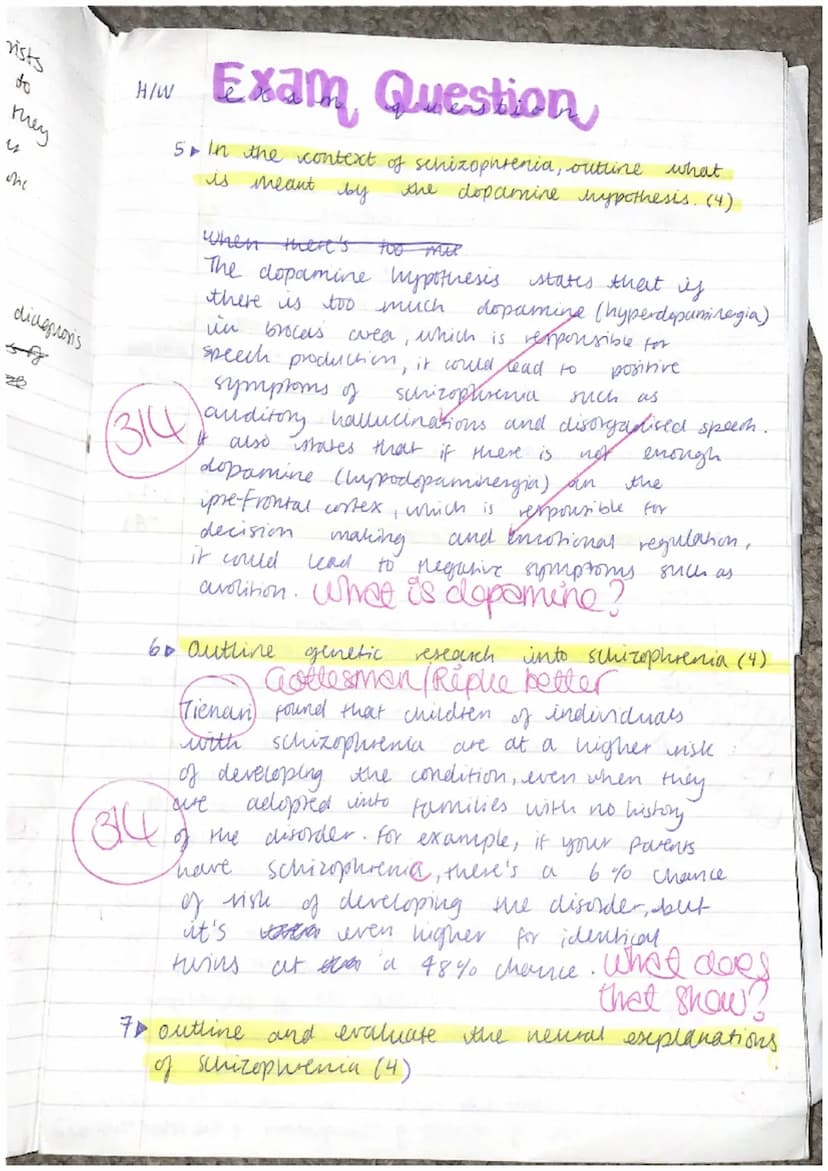 rists
to
they
diagnosis
H/W Exam Question
exam question
5 In the context of schizophrenia, outline what
is meant by the dopamine hypothesis. (4)
When there's too mu
The dopamine hypothesis states that if
there is too much dopamine (hyperdopaminergia)
in brocas area, which is responsible for
speech production, it could lead to positive
symptoms of schizophrenia such as
auditory hallucinations and disorganised speech.
It also states that if there is not enough
dopamine (hypodopaminergia) in the
pre-frontal cortex, which is responsible for
decision making and emotional regulation,
it could lead to negative symptoms such as
avolition. What is dopamine?
3/4
6 Outline genetic research into schizophrenia (4)
Gottesman/Ripke better
Tienari found that children of individuals
with schizophrenia are at a higher risk
of developing the condition, even when they
are adopted into families with no history
of the disorder. For example, if your parents
have schizophrenia, there's a 6% chance
of risk of developing the disorder, but
it's even higher for identical
twins at a 48% chance. What does
that show?
3/4
7 outline and evaluate the neural explanations
of schizophrenia (4)